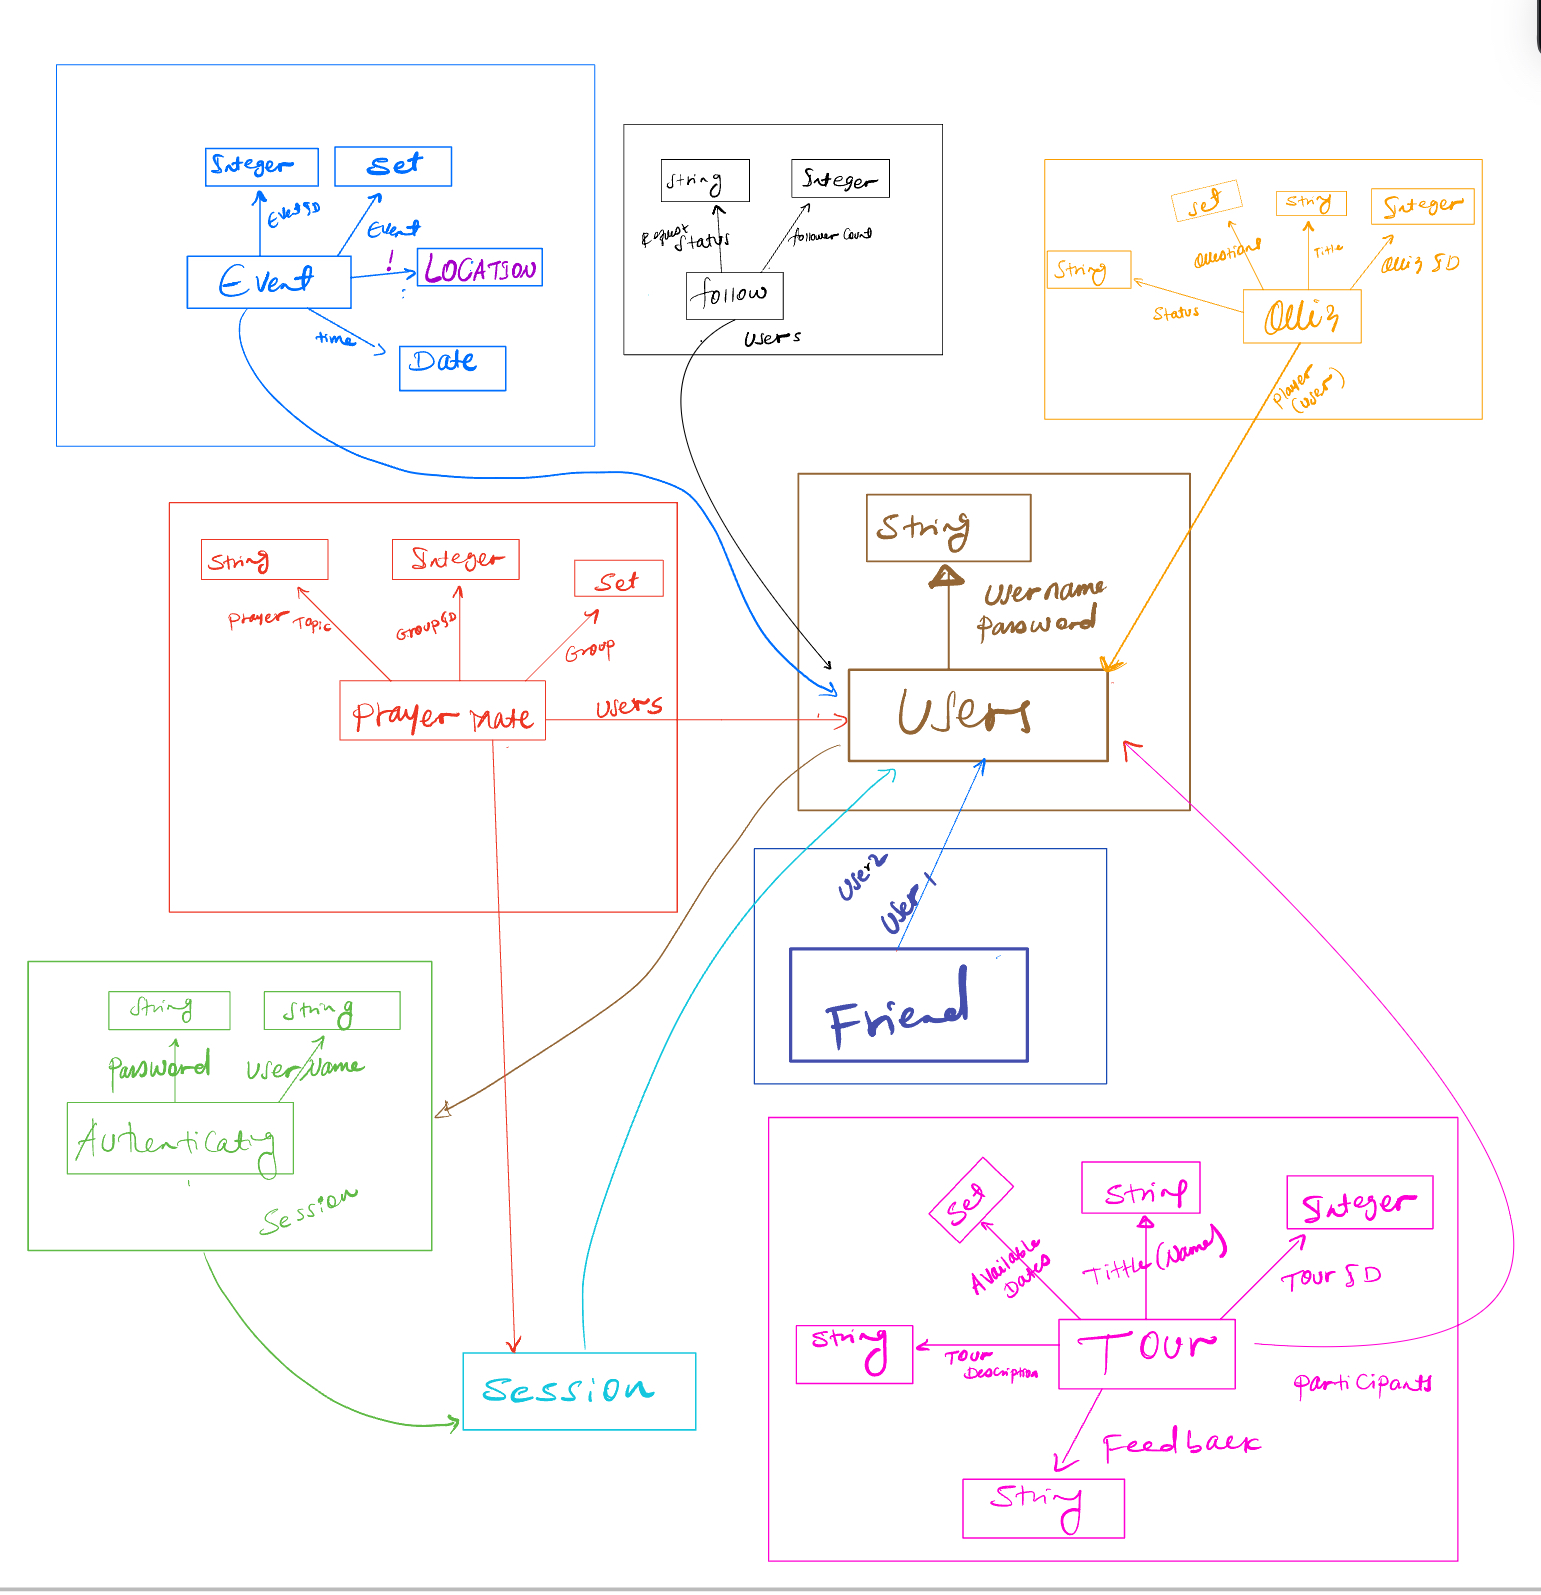 Integer
Set
EventID
Event
!
Event
LOCATION
time
Date
String
Integer
Request
Status
follower Count
follow
Users
Set
String
Integer
String
Questions
Title
Quiz ID
Status
Quiz
Player
(User)
String
Integer
Set
Prayer Topic
GroupID
Group
Prayer Mate
Users
String
Username
Password
Users
User2
User1
Friend
String
String
Password
UserName
Authenticating
Session
Session
Set
String
Integer
Available
Dates
Tittle (Name)
Tour ID
String
Tour
Description
Tour
Participants
Feedback
String